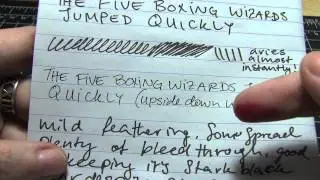 THE FIVE BOXING WIZARDS
JUMPED QUICKLY
dries
almost
instantly!
THE FIVE BOXING WIZARDS
QUICKLY (upside down
mild feathering, some spread
plenty of bleedthrough, good
keeping its stark black